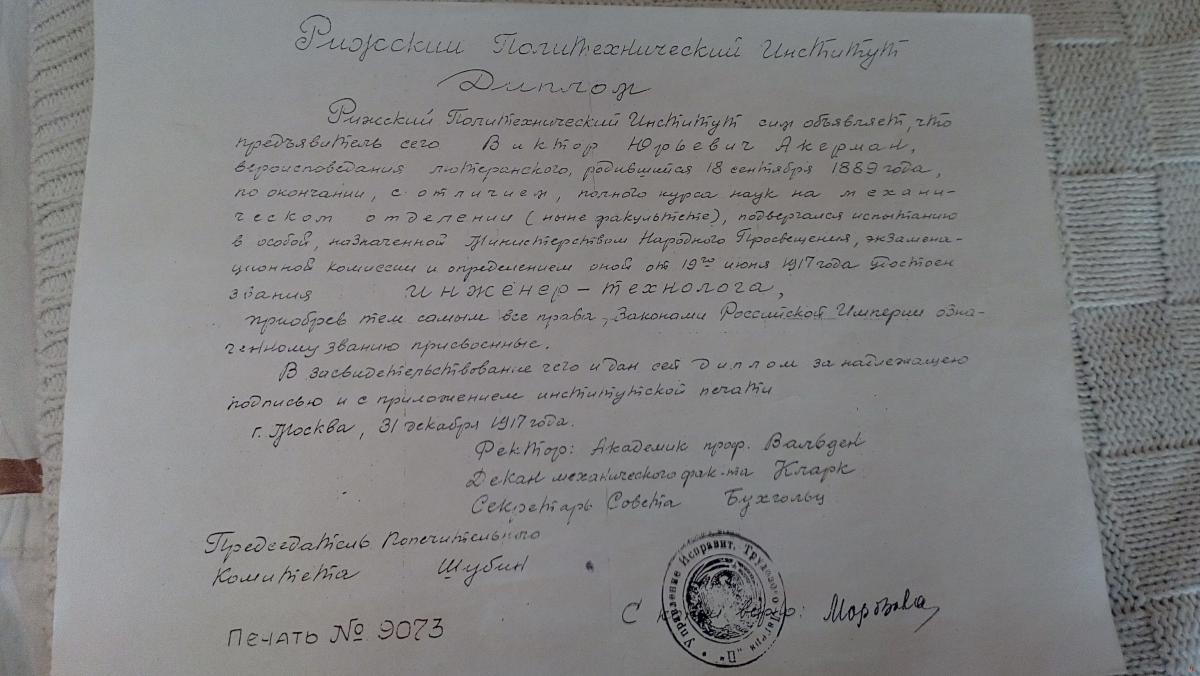 Рижский Политехнический Институт
Диплом
Рижский Политехнический Институт сим объявляет, что
предъявитель сего Виктор Юрьевич Акерман,
вероисповедания лютеранского, родившийся 18 сентября 1889 года,
по окончании, с отличием, полного курса наук на механи-
ческом отделении (ныне факультете), подвергался испытанию
в особой, назначенной Министерством Народного Просвещения, экзамена-
ционной комиссии и определением оной от 19го июня 1917 года удостоен
звания инженер-технолога,
приобрев тем самым все права, Законами Российской Империи озна-
ченному званию присвоенные.
В засвидетельствование чего и дан сей диплом за надлежащею
подписью и с приложением институтской печати
г. Москва, 31 декабря 1917 года.
Ректор: Академик проф. Вальден
Декан механического фак-та Кларк
Секретарь Совета Бухгольц
Председатель Попечительного
Комитета Шубин
Управление Исправит. Трудового Лагеря "П"
С верно: Морозова
Печать № 9073